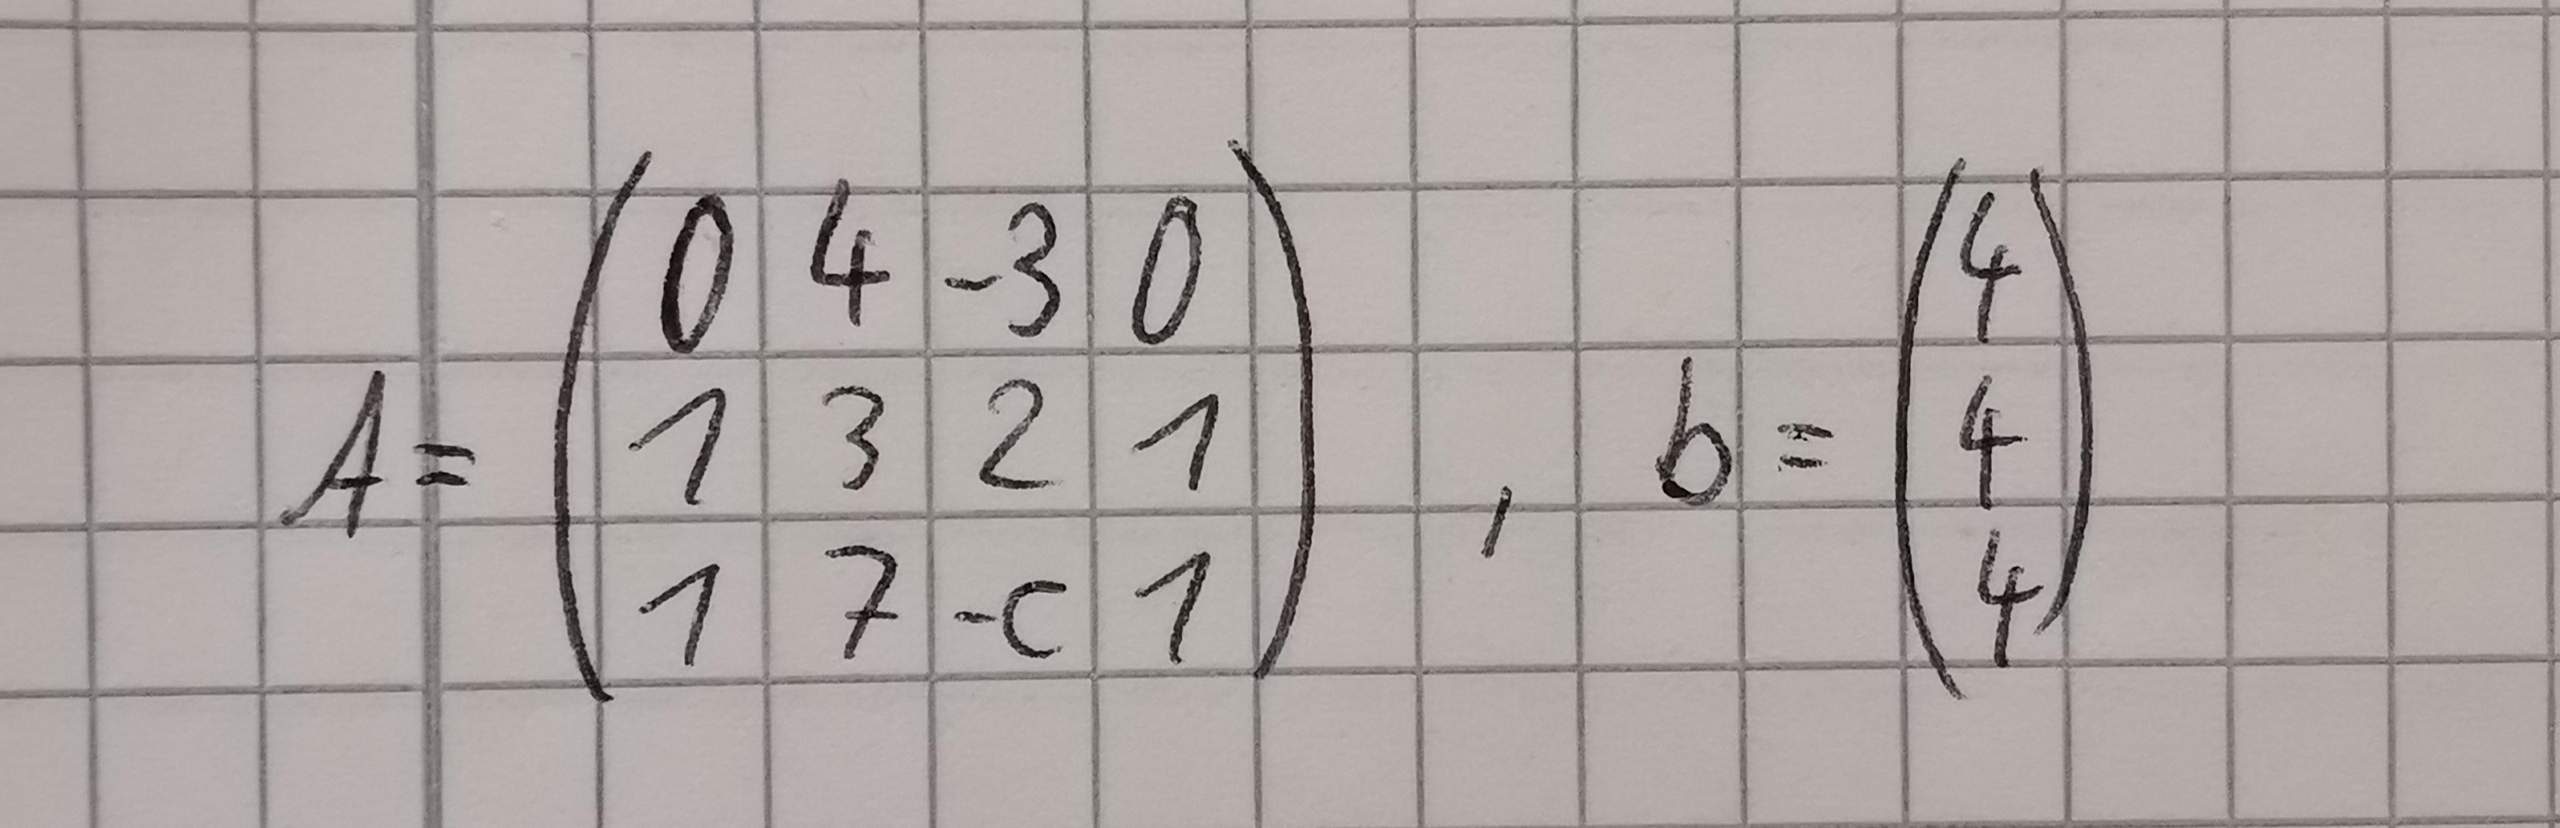 A = ( 0 4 -3 0 ; 1 3 2 1 ; 1 7 -c 1 ) , b = ( 4 ; 4 ; 4 )